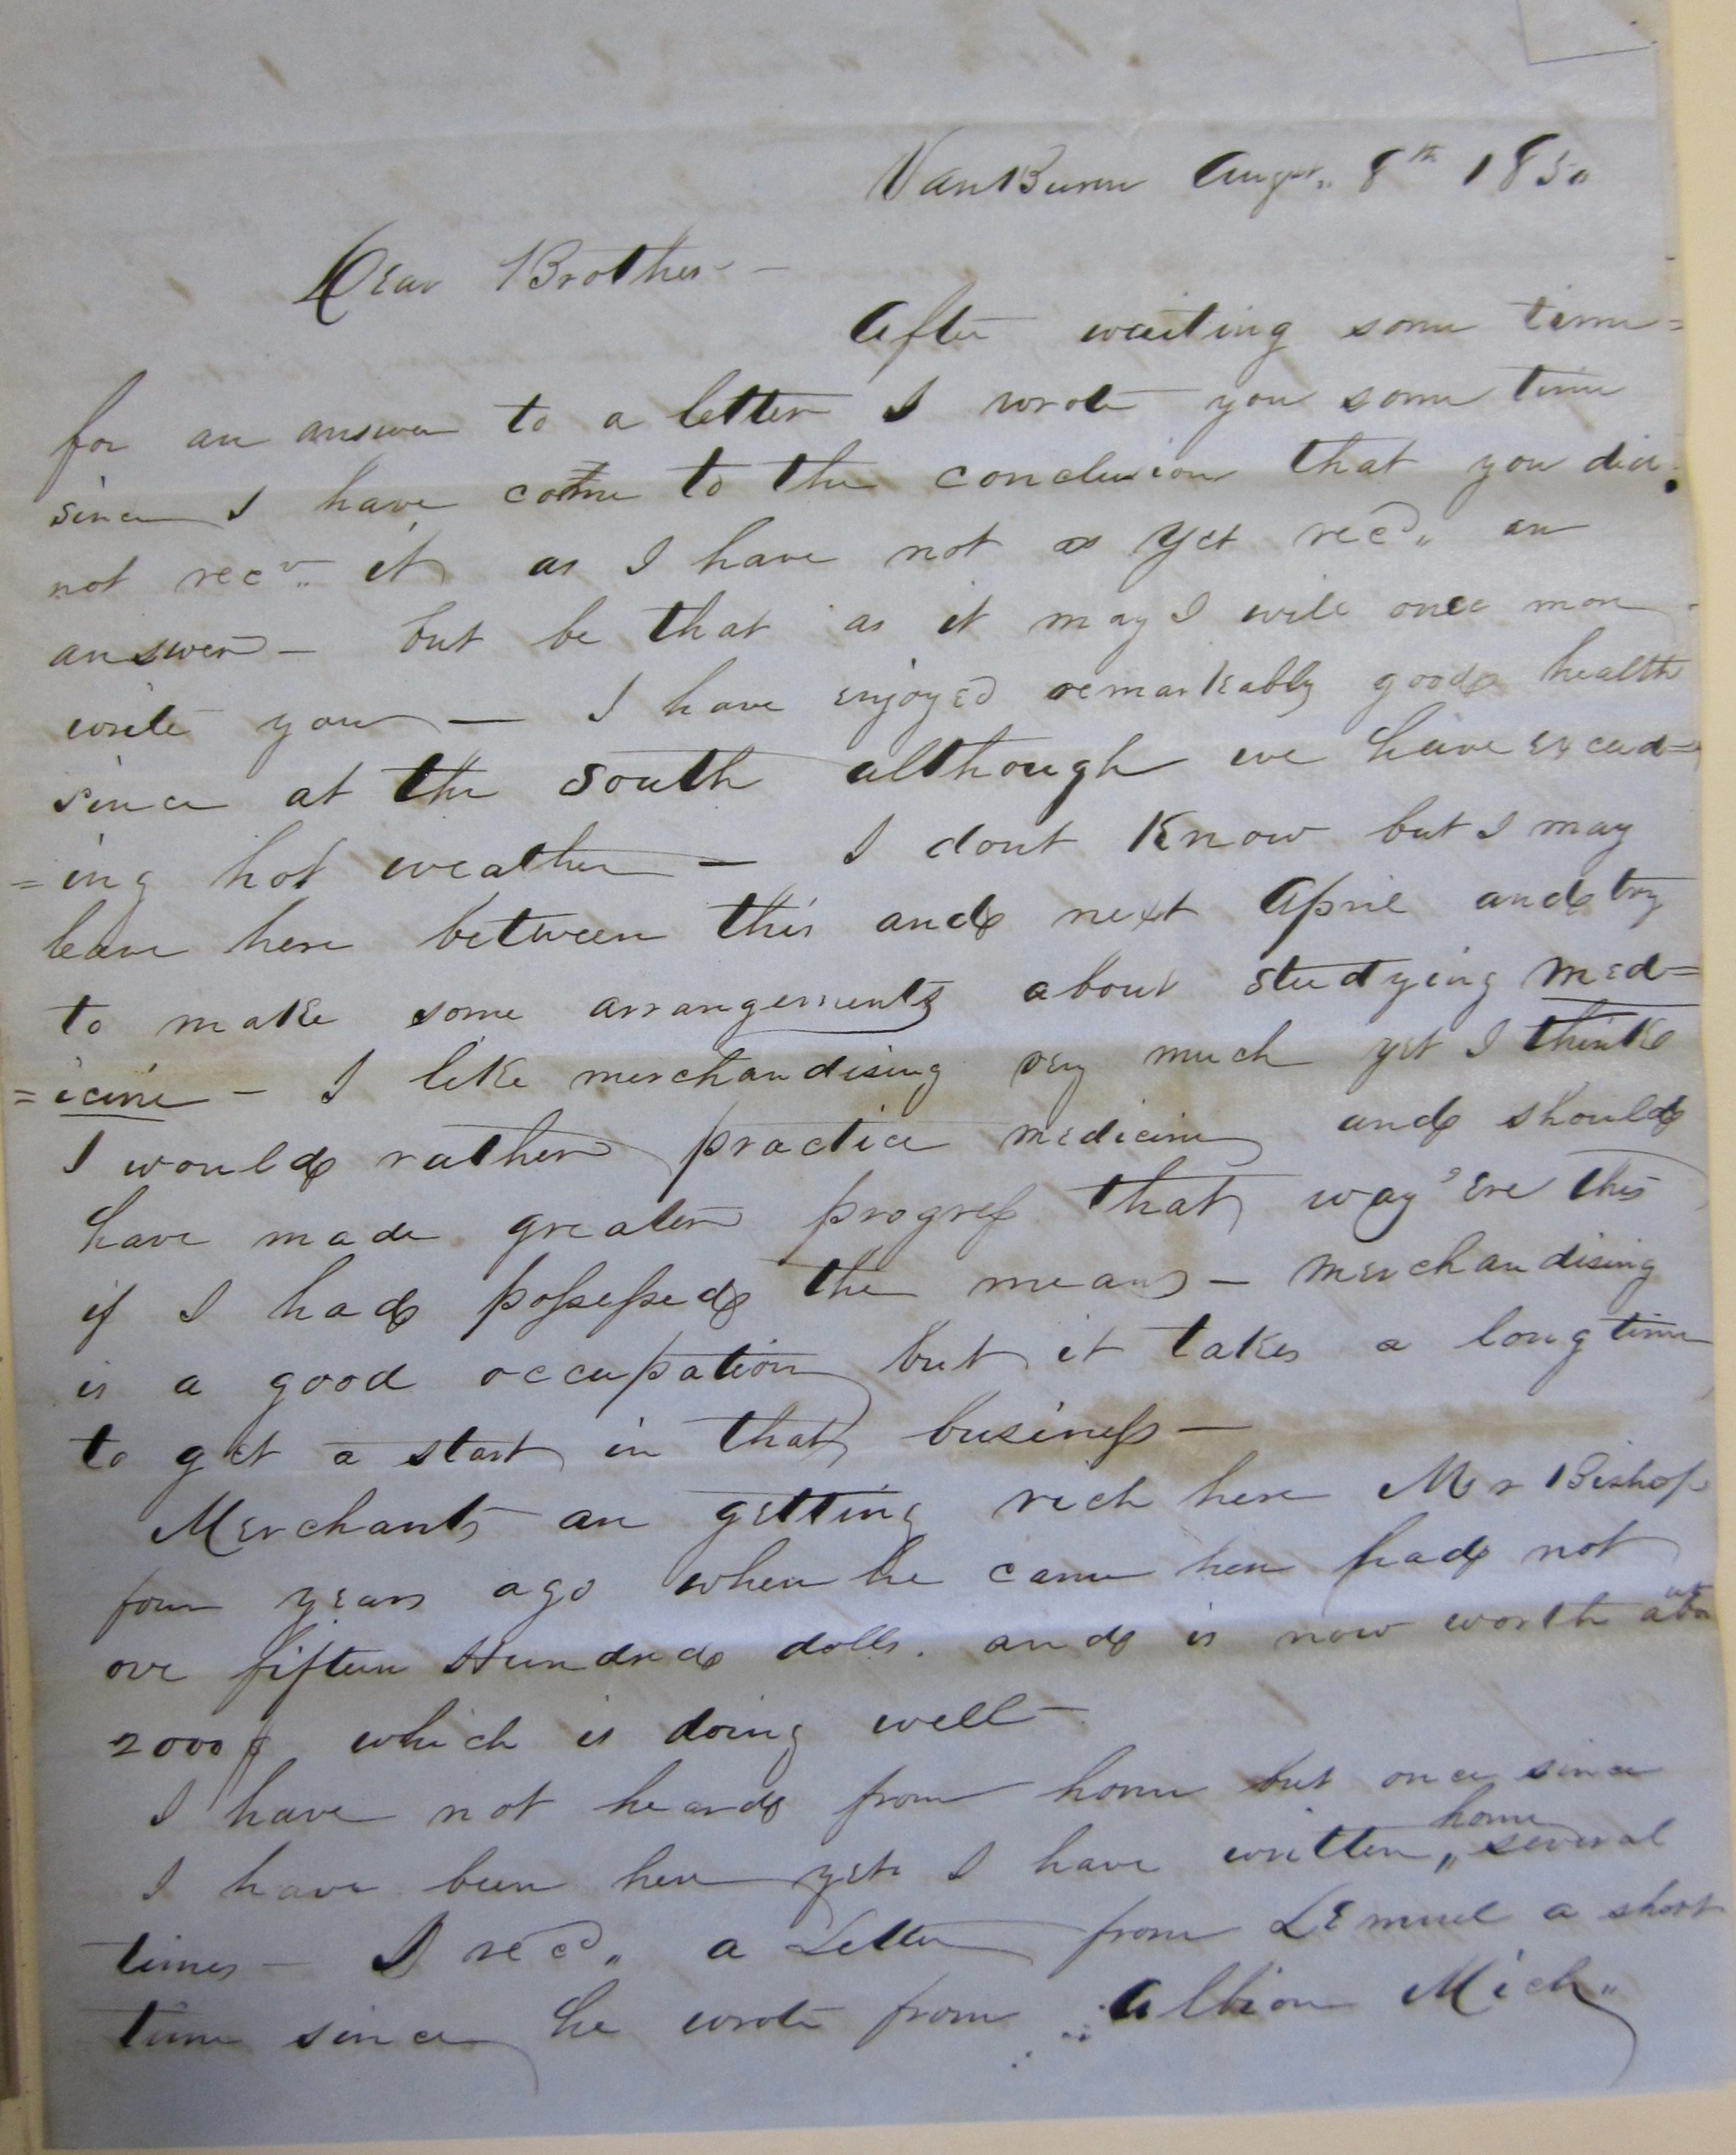 VanBuren Augst.. 8th 1850
Dear Brother -
After waiting some time=
for an answer to a letter I wrote you some time
since I have come to the conclusion that you did
not recv.. it as I have not as yet recd.. an
answer - but be that as it may I will once more
write you — I have enjoyed remarkably good health
since at the South although we have exceed=
=ing hot weather — I dont Know but I may
leave here between this and next April and try
to make some arrangements about studying Med=
=icine - I like merchandising very much yet I think
I would rather practice medicine and should
have made greater progress that way 'ere this
if I had possessed the means - Merchandising
is a good occupation but it takes a long time
to get a start in that business -
Merchants are getting rich here Mr Bishop
four years ago when he came here had not
over fifteen Hundred dolls. and is now worth about
2000$ which is doing well -
I have not heard from home but once since
I have been here yet I have written,, home several
times - I recd.. a Letter from Lemuel a short
time since he wrote from Albion Mich..